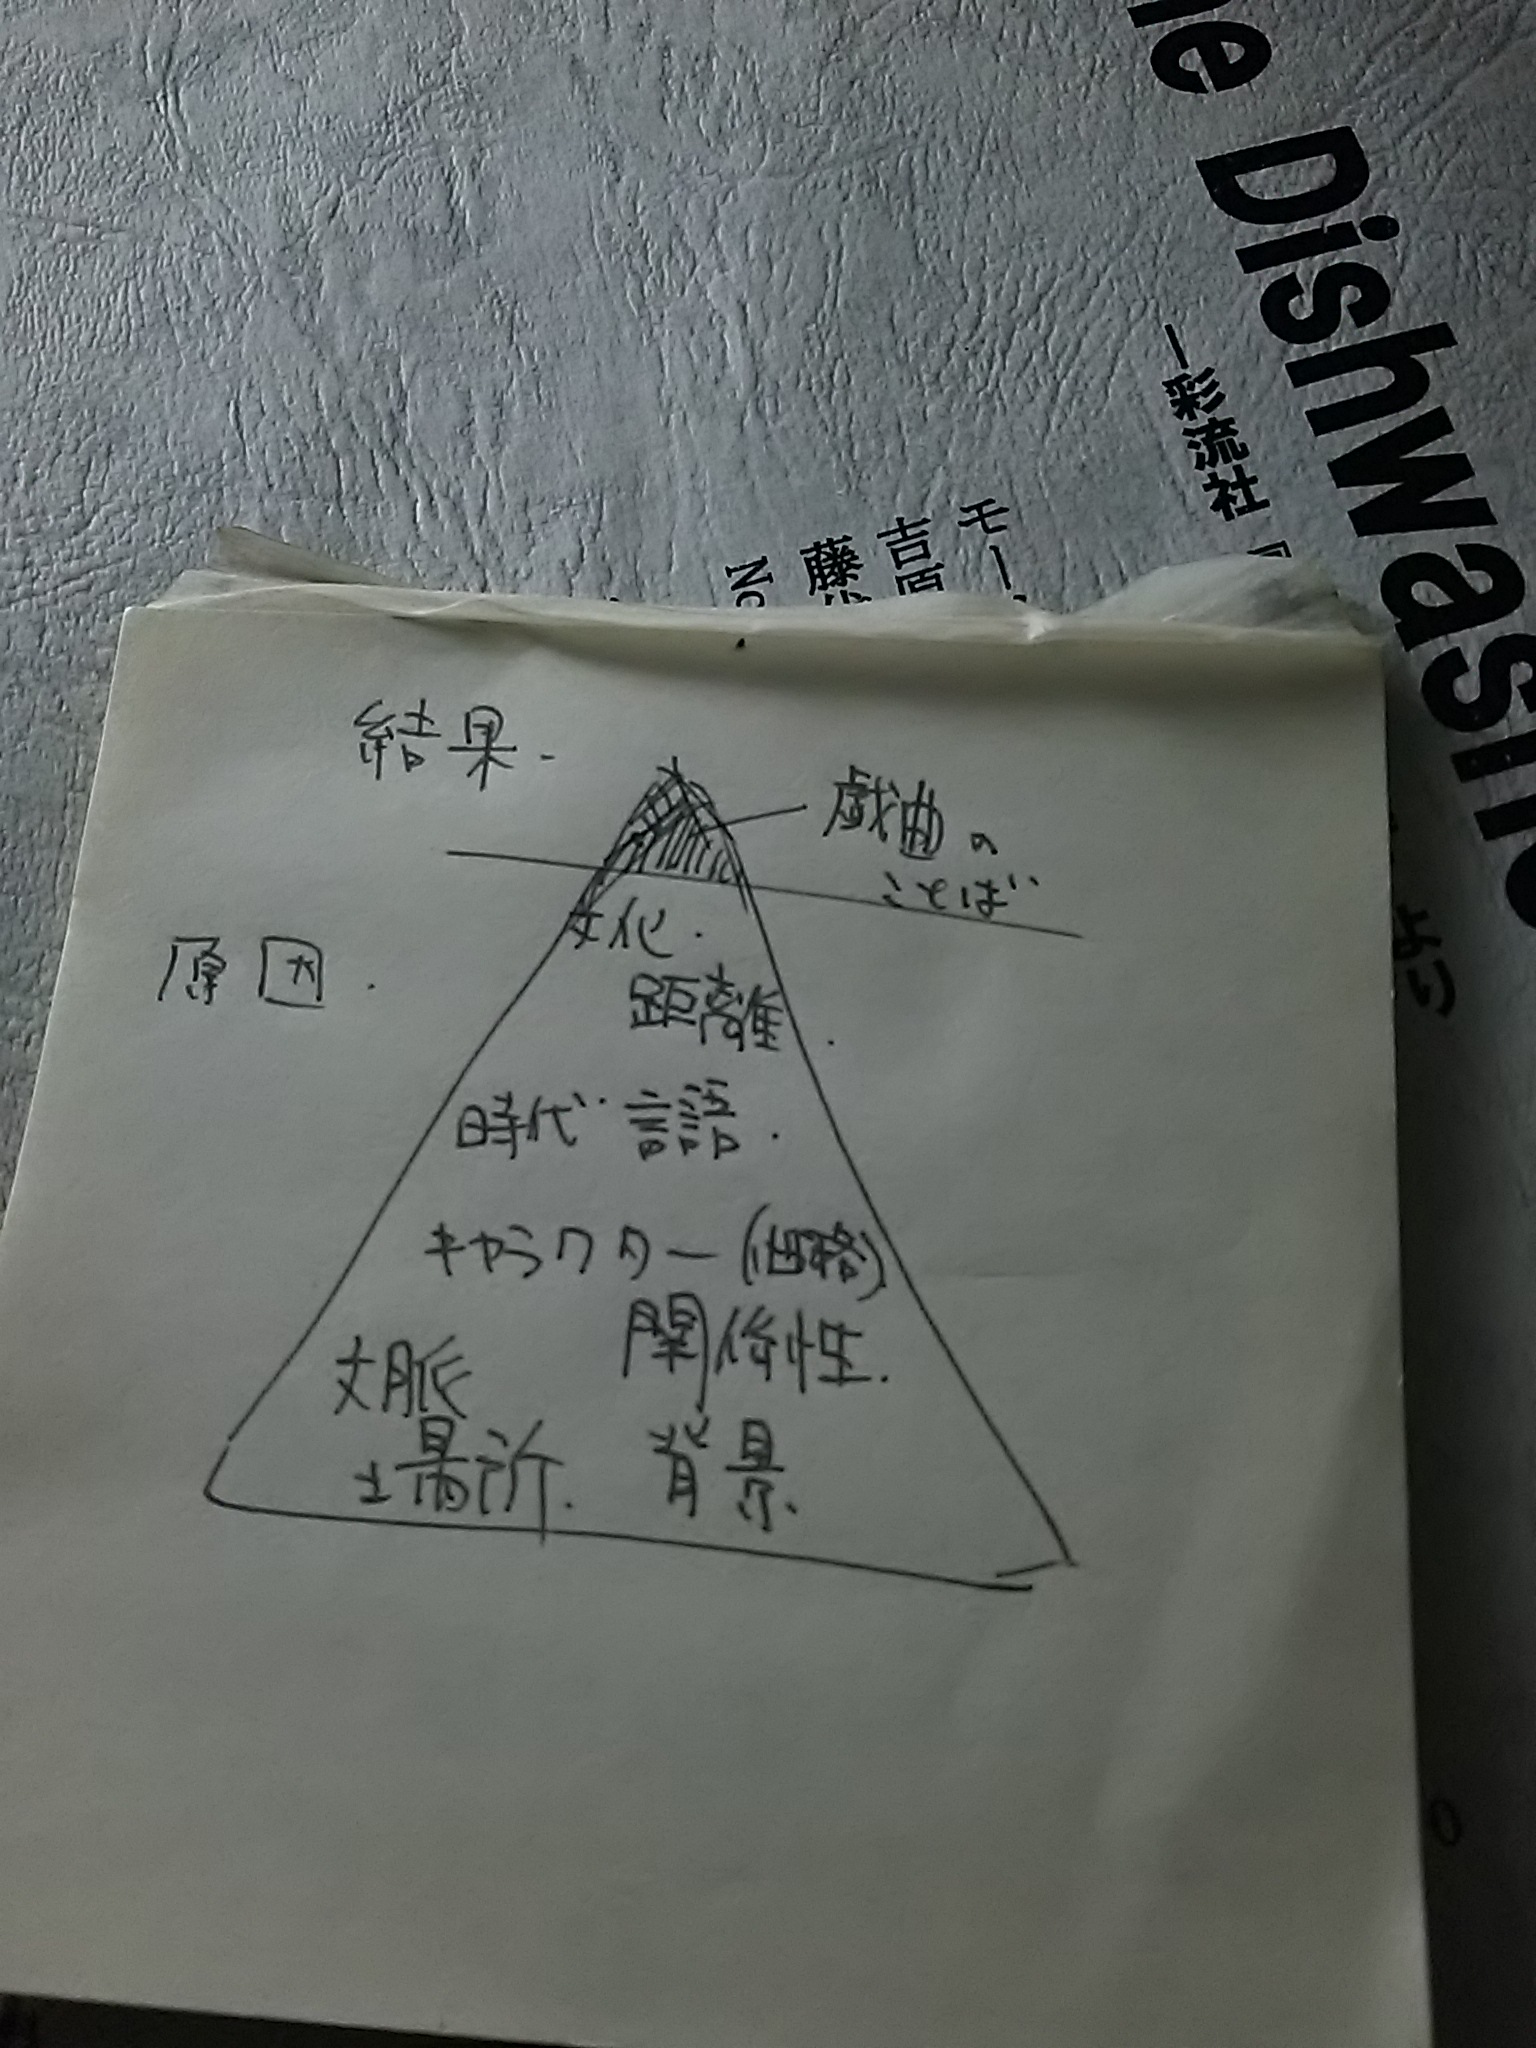 he Dishwashe
―彩流社
モー
吉原
藤
No
より
結果.
戯曲の
ことば
原因.
文化.
距離.
時代 言語.
キャラクター
関係性.
文脈
場所. 背景.